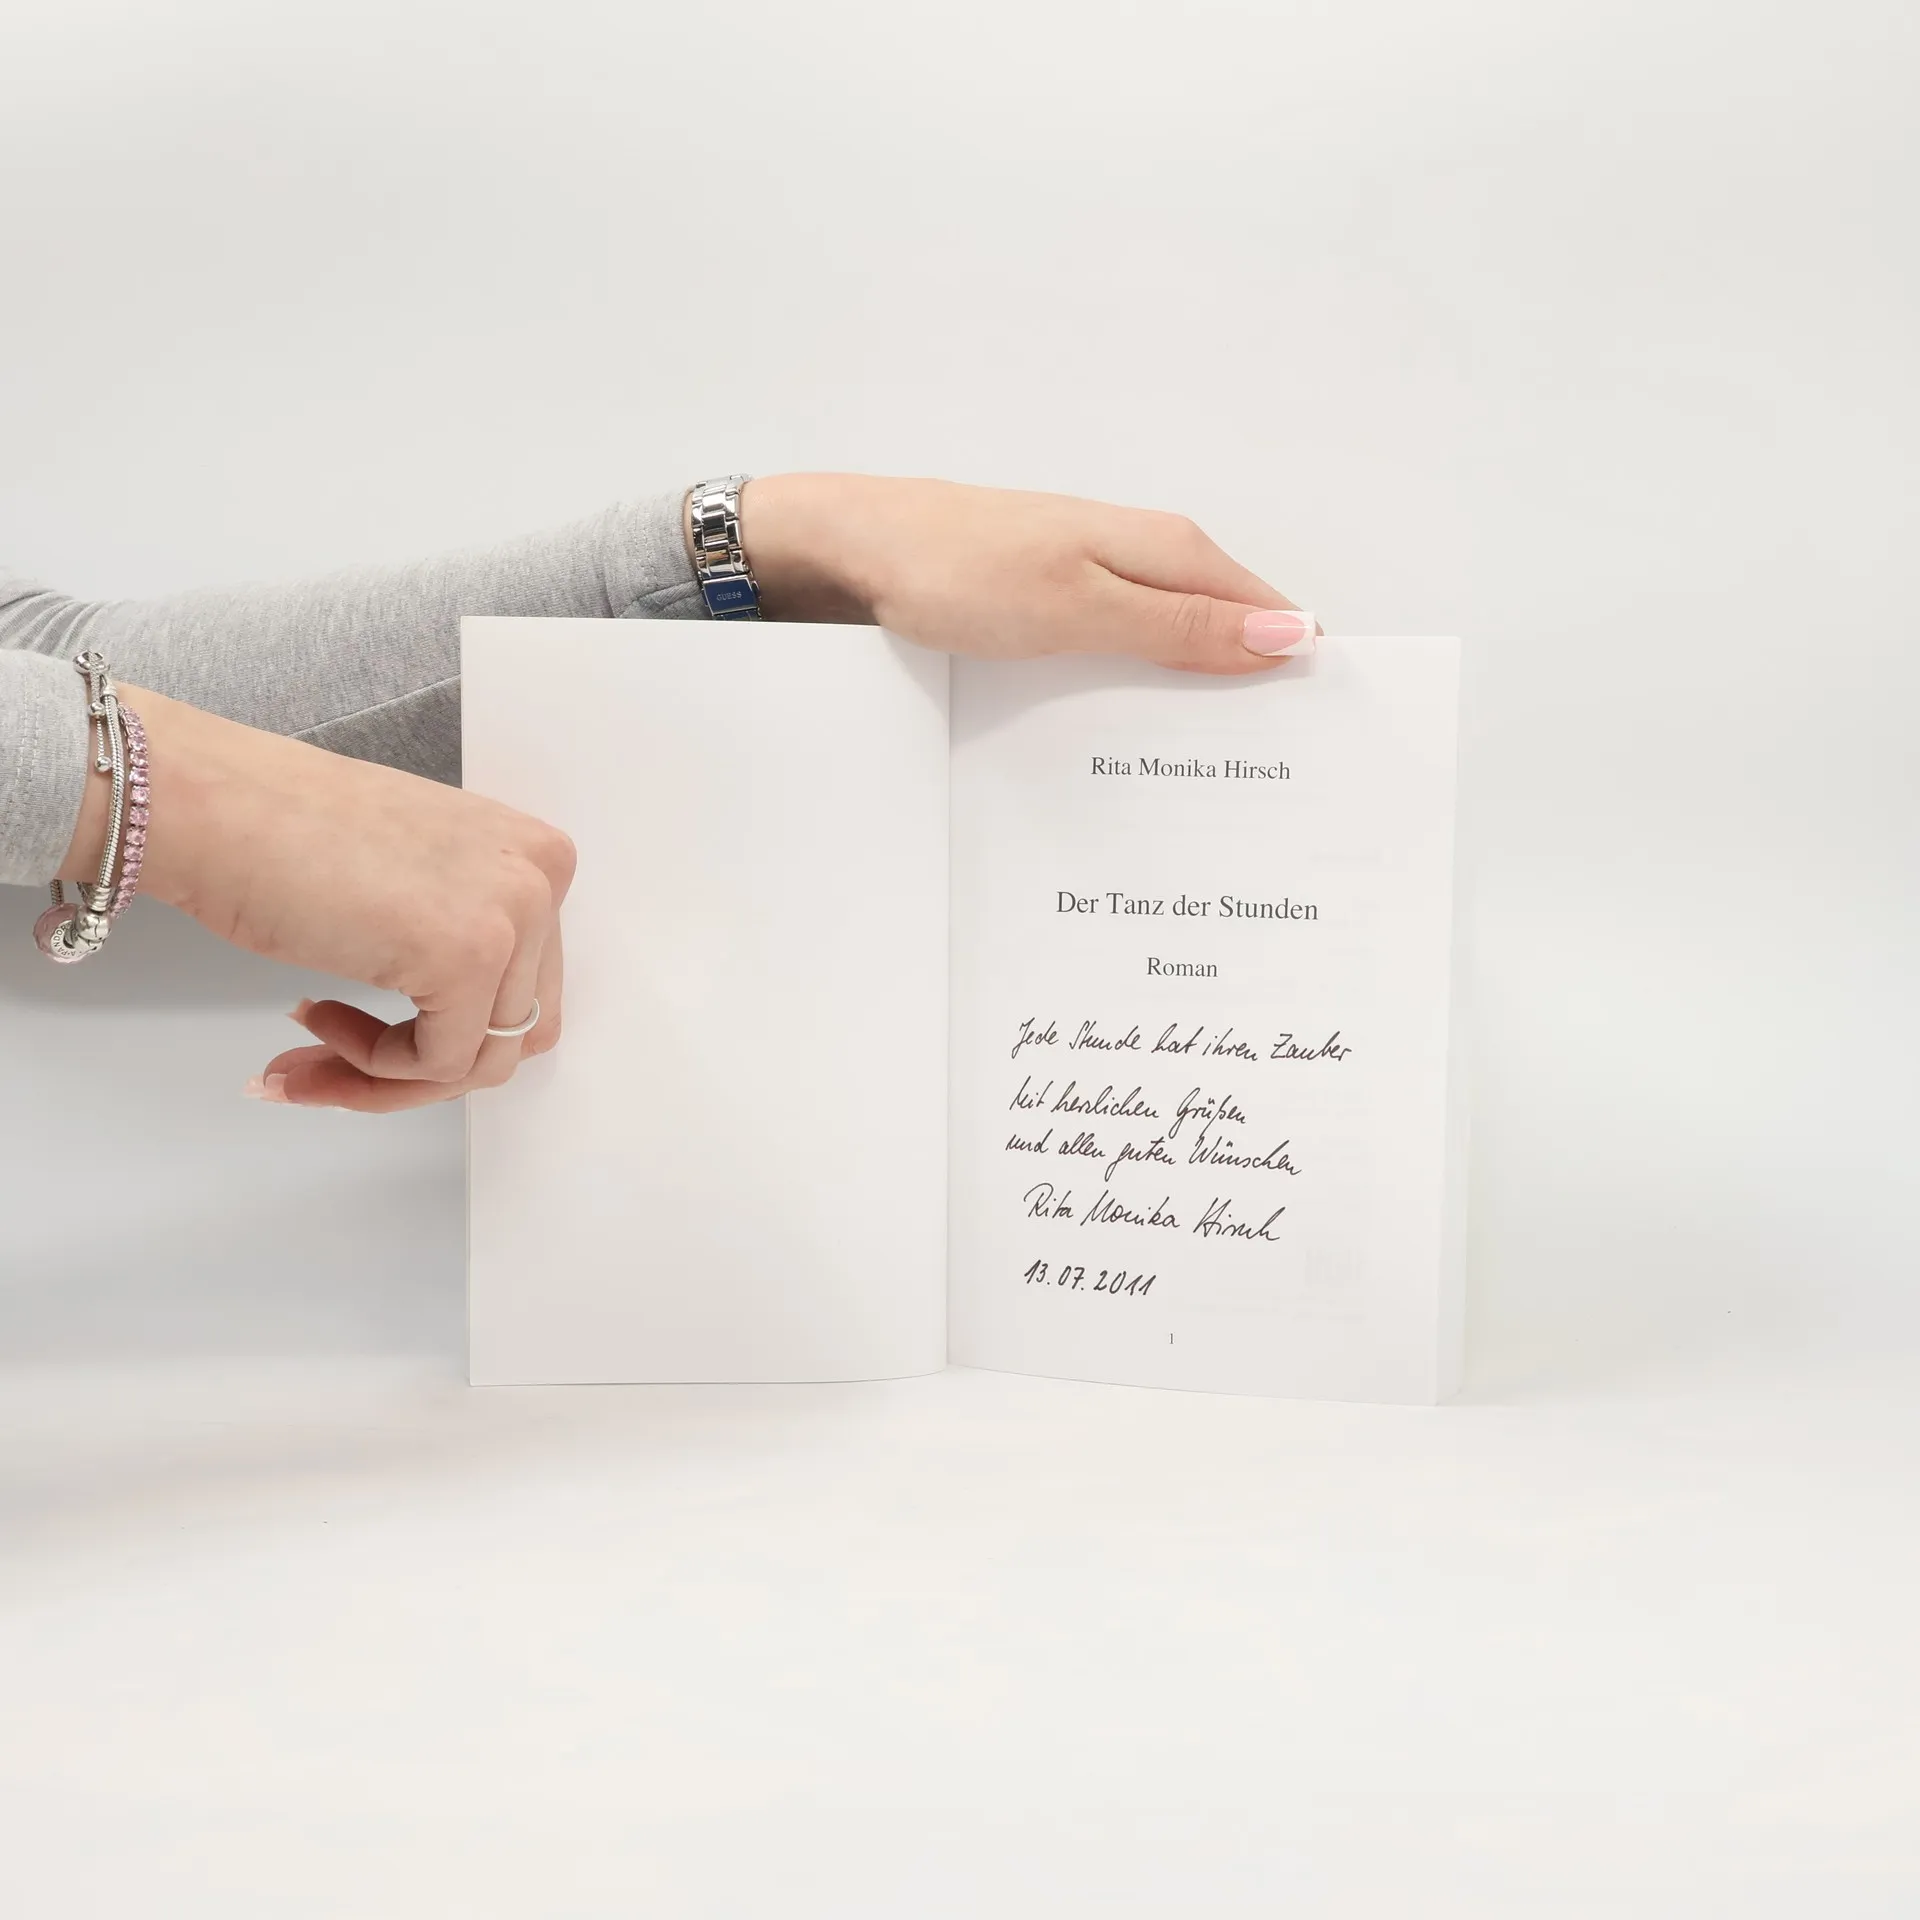 GUESS
Rita Monika Hirsch
Der Tanz der Stunden
Roman
Jede Stunde hat ihren Zauber
Mit herzlichen Grüßen
und allen guten Wünschen
Rita Monika Hirsch
13.07.2011
1